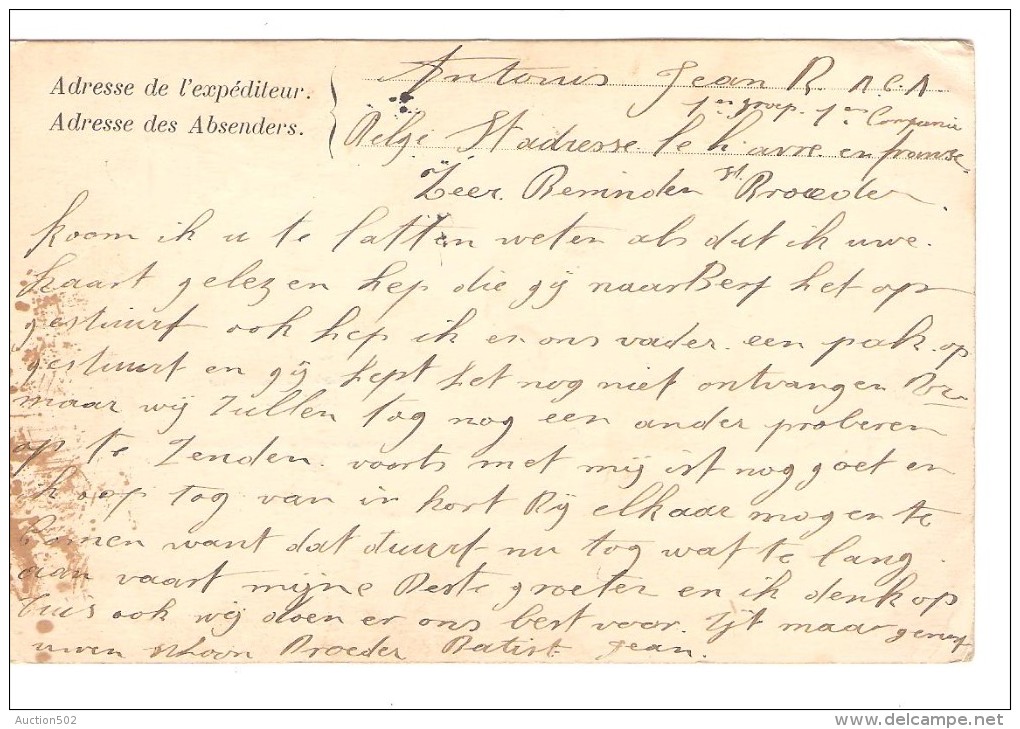 Adresse de l'expéditeur.
Adresse des Absenders.
Antonis Jean R. A.C.A
1en groep. 1en Companie
Belge St adresse le havre en franse
Zeer Beminden Broeder.
koom ik u te latten weten als dat ik uwe
kaart gelezen hep die gij naar Berf het op
gestuurt ook hep ik en ons vader een pak op
gestuurt en gij hept het nog niet ontvangen
maar wij zullen tog nog een ander proberen
op te Zenden voorts met mij ist nog goet en
ik oop tog van in kort Bij elkaar mogen te
komen want dat duurt nu tog wat te lang
aan vaart mijne Beste groeten en ik denk op
ook wij doen er ons best voor. Zijt maar gerust
uwen schoon Broeder Batist Jean.
Auction502
www.delcampe.net